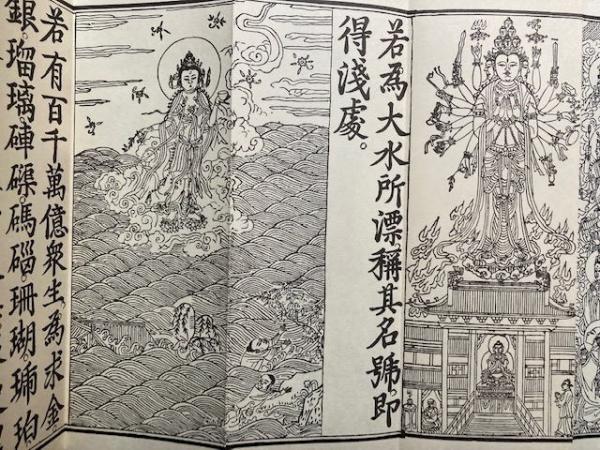 若為大水所漂。稱其名號。即
得淺處。
若有百千萬億衆生。為求金。
銀。瑠璃。硨磲。碼碯。珊瑚。琥珀